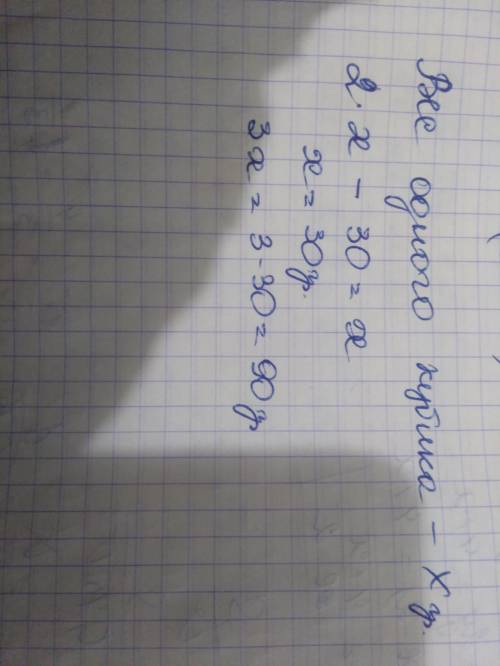 Вес одного кубика – x гр.
2·x – 30 = x
x = 30гр.
3x = 3·30 = 90гр